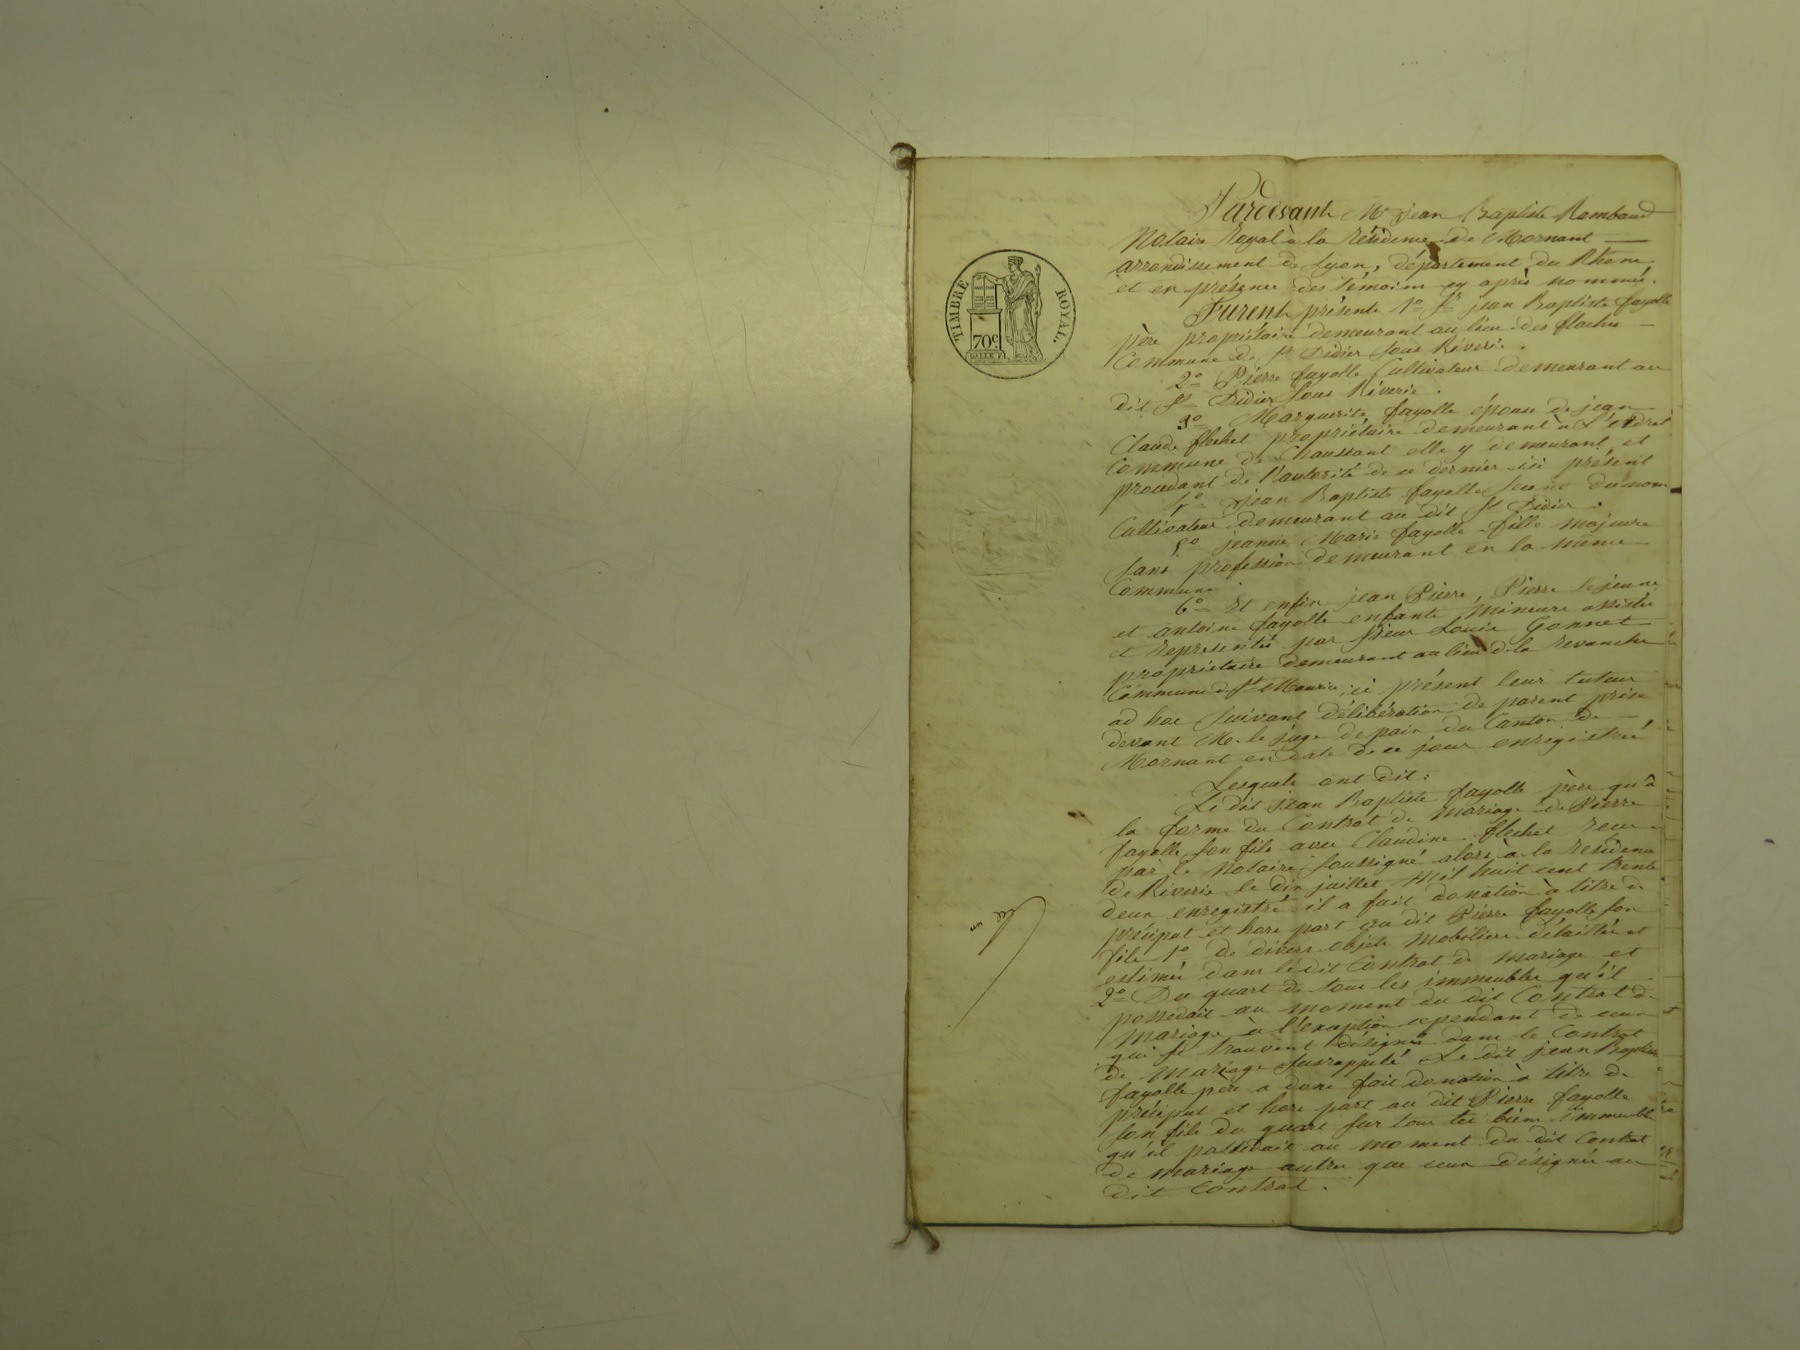 TIMBRE ROYAL.
70c
Pardevant Me Jean Baptiste Rambaud
Notaire Royal à la résidence de Mornant
arrondissement de Lyon, département du Rhone
et en présence des témoins cy après nommés.
Furent présents 1o Sr jean Baptiste fayolle
père propriétaire demeurant au lieu des flaches
Commune de St Didier sous Riverie.
2o Pierre fayolle Cultivateur demeurant au
dit St Didier sous Riverie.
3o Marguerite fayolle épouse de jean
Claude flechet propriétaire demeurant à
Commune de Chaussant elle y demeurant et
procédant de l'autorité de ce dernier ici présent
4o Jean Baptiste fayolle second du nom
Cultivateur demeurant au dit St Didier.
5o jeanne Marie fayolle fille majeure
sans profession demeurant en la même
Commune
6o Et enfin jean Pierre, Pierre le jeune
et antoine fayolle enfants Mineurs assistés
et représentés par sieur Louis Gonnet
propriétaire demeurant au lieu de la Revanche
Commune de St Maurice, ici présent leur tuteur
ad hoc suivant délibération de parents prise
devant M. le juge de paix du Canton de
Mornant en date de ce jour enregistrée
Lesquels ont dit:
Le dit jean Baptiste fayolle père qu'à
la forme du Contrat de mariage de Pierre
fayolle son fils avec Claudine flechet reçu
par le Notaire soussigné alors à la résidence
de Riverie le dix juillet mil huit cent trente
deux enregistré il a fait donation à titre de
préciput et hors part au dit Pierre fayolle son
fils 1o de divers objets mobiliers détaillés et
estimés dans le dit Contrat de mariage et
2o Du quart de tous les immeubles qu'il
possédait au moment du dit Contrat de
mariage à l'exception cependant de ceux
qui se trouvent désignés dans le Contrat
de mariage susrappelé. Le dit jean Baptiste
fayolle père a donc fait donation à titre de
préciput et hors part au dit Pierre fayolle
son fils du quart sur tous les biens immeubles
qu'il possédait au moment du dit Contrat
de mariage autres que ceux désignés au
dit Contrat.